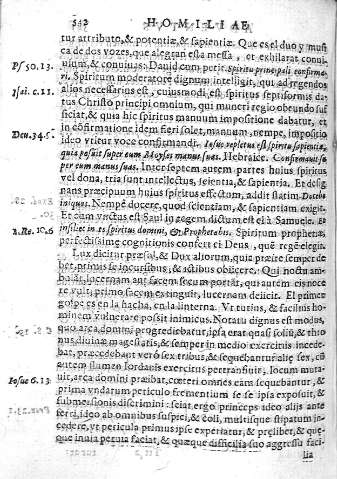 342 HOMILIAE
tur attributo, & potentiæ, & sapientiæ. Que es el duo y musi
ca de dos vozes, que alegran essa messa, et exhilarat convi
Ps. 50. 13. uium, & conuiuas. Dauid cum petit. Spiritu principali confirma
ri. Spiritum moderatore dignum intelligit, qui ad regendos
Isai. c. 11. alios necessarius est, cuiusmodi, est spiritus septiformis da
tus Christo principi omnium, qui muneri regio obeundo suf
ficiat, & qua hic spiritus manuum impositione dabatur, et
in cõfirmatione idem fieri solet, manuum, nempe, impositio
Deu. 34. 5. ideo vtitur voce confirmandi. Iosue repletus est spiritu sapientiæ,
quia posuit super eum Moyses manus suas. Hebraice. Confirmauit su
per eum manus suas. Inter septem autem partes huius spiritus
vel dona, tria sunt intellectus, scientia, & sapientia. Et desig
nans præcipuum huius spiritus effectum, addit statim. Docebo
iniquos. Nempè docere, quod scientiam, & sapientiam exigit.
Et cum vnctus est Saul in regem dictum est ei à Samuele. Et
insiliet in te spiritus domini, & Prophetabis. Spiritum prophetiæ,
perfectissimæ cognitionis confert ei Deus, quẽ regẽ elegit.
Lux dicitur præsul, & Dux aliorum, quia præire semper de
bet, primus se incursibus, & ictibus obijcere. Qui noctu am
bulat, lucernam aut facem secum portat, qui autem eis noce
re vult, primo facem extinguit, lucernam deijcit. El primer
golpe es en la hacha, en la linterna. Vt tutius, & facilius ho
minem vulnerare possit inimicus. Notatu dignus est modus,
quo arca domini progrediebatur, ipsa erat quasi solium, & thro
nus diuinæ magestatis, & semper in medio exercitus incede
bat, præcedebant verò sex tribus, & sequebantur aliæ sex, cũ
autem flumen Iordanis exercitus pertransiuit, locum muta
Iosue 6. 13. uit, arca domini præibat, cæteri omnes eam sequebãtur, &
prima vndarum periculo frementium se se ipsa exposuit, &
submersionis discrimini: sciat ergo princeps ideo alijs ante
ferri, ideo ab omnibus suspici, & coli, multisque stipatum ince
dere, vt pericula primus ipse expertatur, & prælibet, & quæ
que inuia peruia faciat, & quæque difficilia suo aggressu faci-
lia